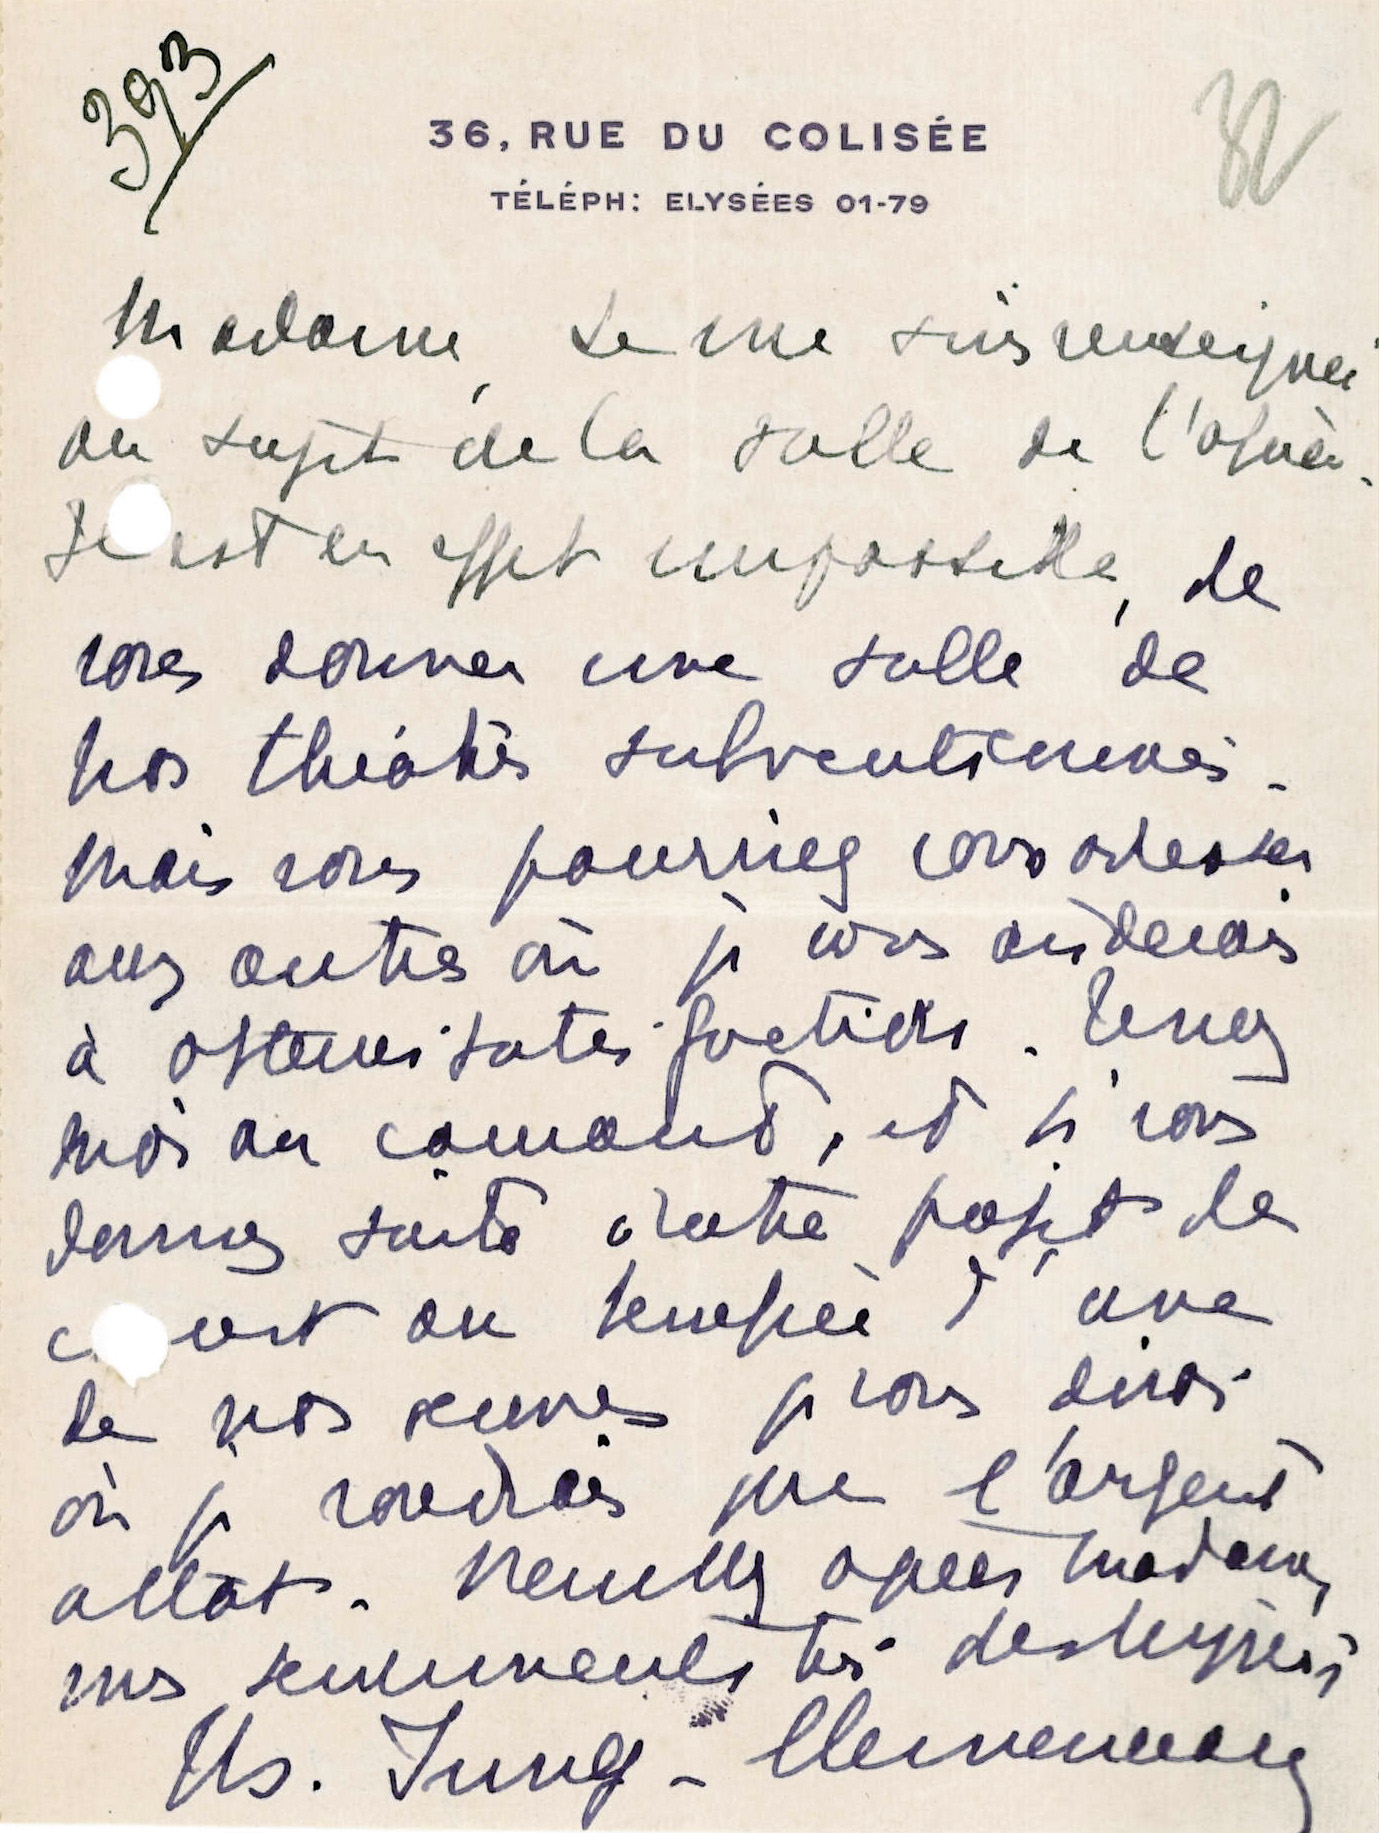 393
32
36, RUE DU COLISÉE
TÉLÉPH: ELYSÉES 01-79
Madame, Je me suis renseignée
au sujet de la salle de l'opéra.
Il est en effet impossible, de
vous donner une salle de
nos théâtres subventionnés.
Mais vous pourriez vous adresser
aux autres où je vous aiderais
à obtenir satisfaction. Tenez
moi au courant, et si vous
donnez suite à votre projet de
au bénéfice d'une
de nos œuvres je vous dirai
où je voudrais que l'argent
allât. Veuillez agréer Madame,
mes sentiments très distingués
Ths. Jung - Clemenceau